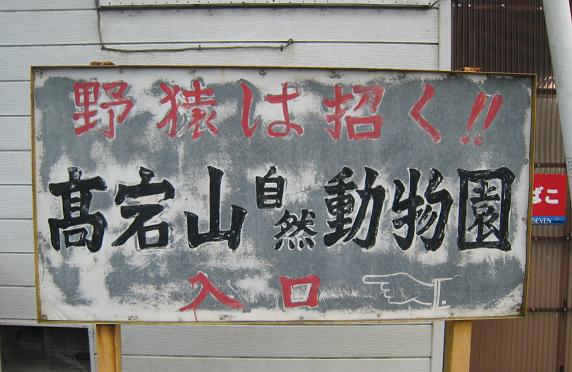 野猿は招く!!
髙宕山自然動物園
入口
ばこ
SEVEN